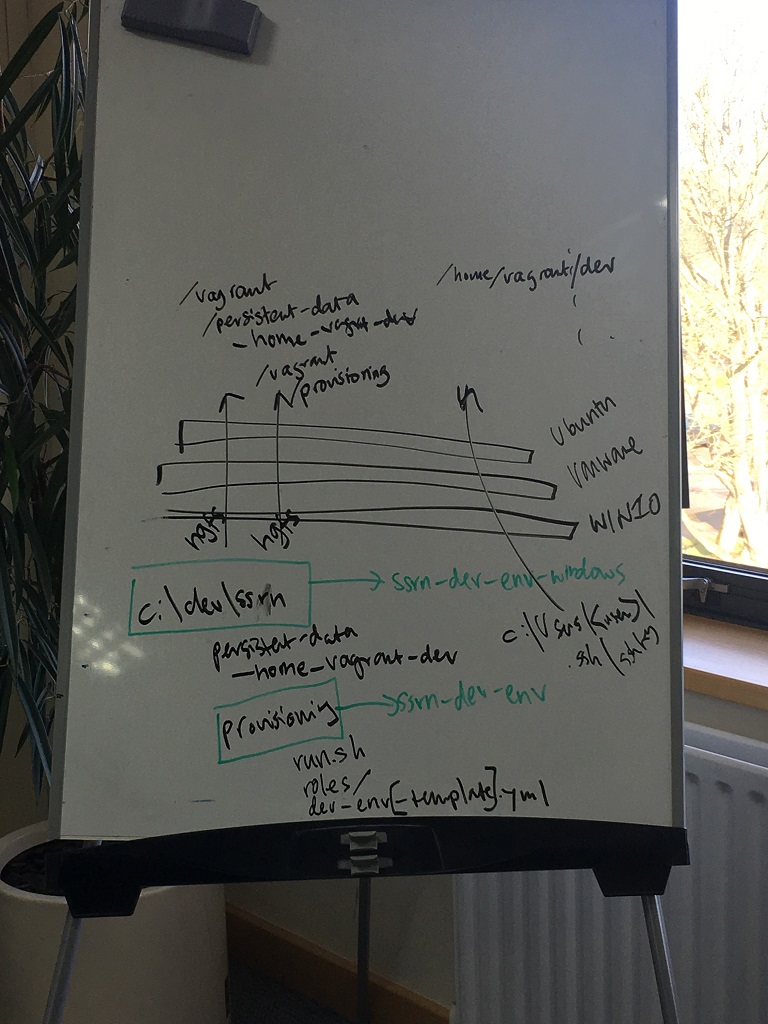 /vagrant
/persistent-data
-home-vagrant-dev
/vagrant
/provisioning
/home/vagrant/dev
Ubuntu
Vmware
WIN10
hgfs
hgfs
c:\dev\ssrn
ssrn-dev-env-windows
persistent-data
-home-vagrant-dev
c:\Users\{user}\
.ssh\
provisioning
ssrn-dev-env
run.sh
roles/
dev-env[-template].yml